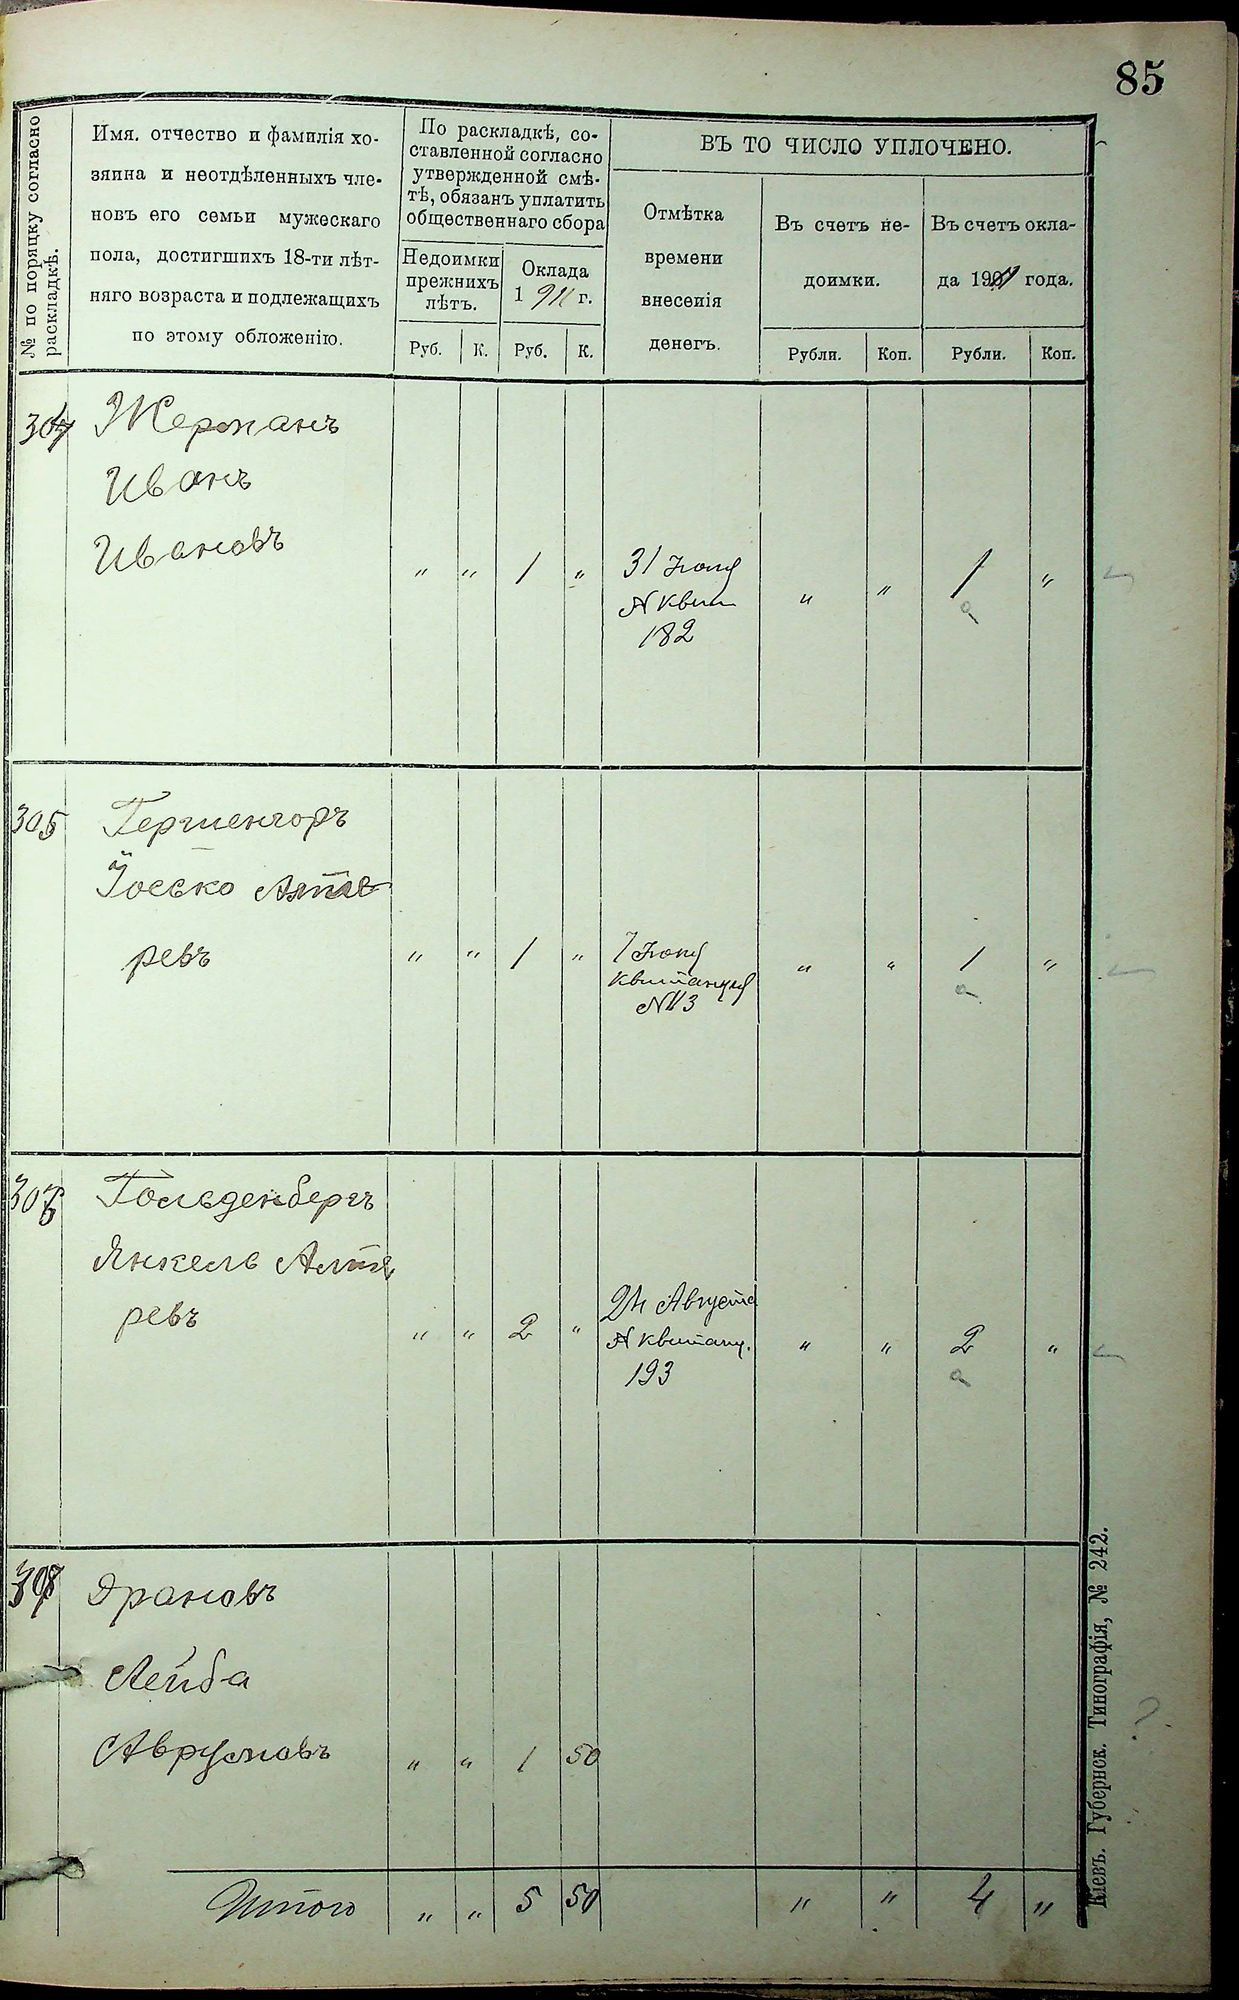 85
№ по порядку согласно
раскладкѣ.
Имя. отчество и фамилія хо-
зяина и неотдѣленныхъ чле-
новъ его семьи мужескаго
пола, достигшихъ 18-ти лѣт-
няго возраста и подлежащихъ
по этому обложенію.
По раскладкѣ, со-
ставленной согласно
утвержденной смѣ-
тѣ, обязанъ уплатить
общественнаго сбора
Недоимки
прежнихъ
лѣтъ.
Оклада
1911 г.
Руб. К. Руб. К.
ВЪ ТО ЧИСЛО УПЛОЧЕНО.
Отмѣтка
времени
внесенія
денегъ.
Въ счетъ не-
доимки.
Въ счетъ окла-
да 1911 года.
Рубли. Коп. Рубли. Коп.
304 Жерманъ
Иванъ
Ивановъ
" " 1 " 31 " " 1 "
№ квит
182
305 Гершенгоръ
Іосько Алте
ревъ
" " 1 " 7 " " 1 "
квитанціи
№ 113
306 Гольденбергъ
Янкель Алте
ревъ
" " 2 " 24 Августа " " 2 "
№ квитанц.
193
307 Драновъ
Лейба
Аврумовъ
" " 1 50
Итого " " 5 50 " " 4 "
Кіевъ. Губернск. Типографія, № 242.
?